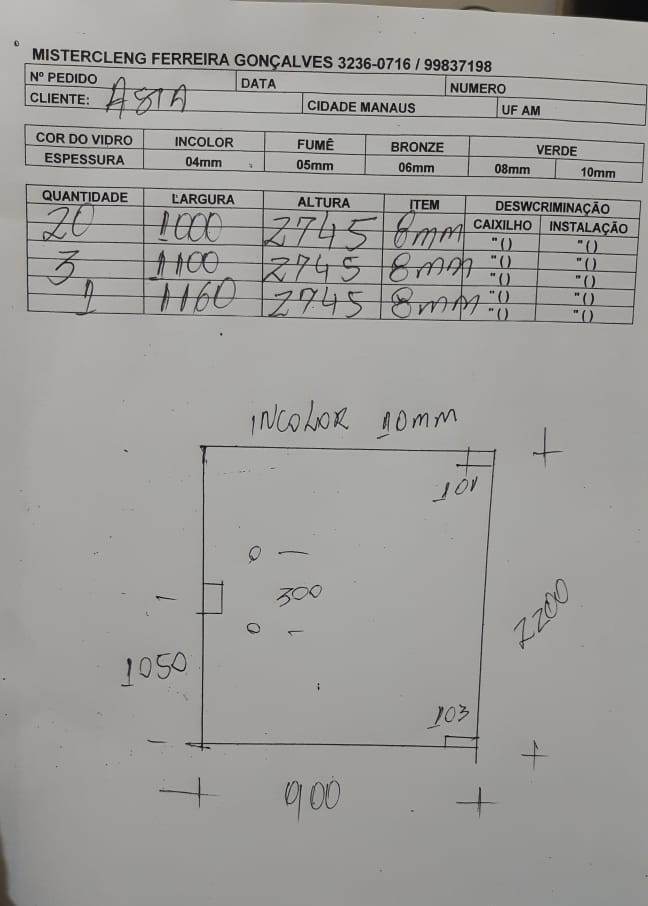 MISTERCLENG FERREIRA GONÇALVES 3236-0716 / 99837198
Nº PEDIDO DATA NUMERO
CLIENTE: CIDADE MANAUS UF AM
COR DO VIDRO INCOLOR FUMÊ BRONZE VERDE
ESPESSURA 04mm 05mm 06mm 08mm 10mm
QUANTIDADE LARGURA ALTURA ITEM DESWCRIMINAÇÃO
CAIXILHO INSTALAÇÃO
20 1000 2745 8mm "() "()
"() "()
3 1100 2745 8mm "() "()
1 1160 2745 8mm "() "()
"() "()
INCOLOR 10mm
101
300
2200
1050
103
900